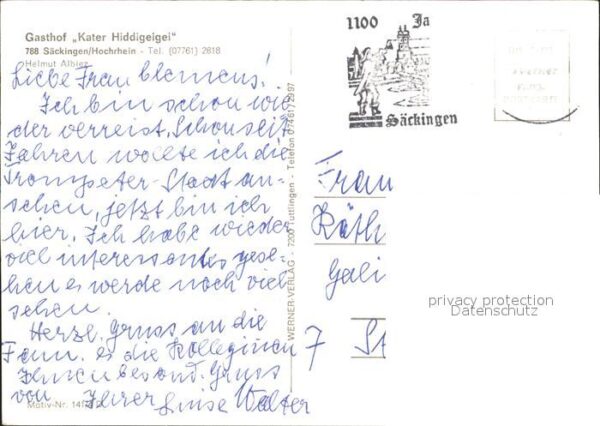 Gasthof „Kater Hiddigeigei"
788 Säckingen/Hochrhein - Tel. (07761) 2818
Helmut Albiez
Liebe Frau Clemens!
Ich bin schon wie
der verreist. Schon seit
Jahren wollte ich die
Trompeter-Stadt an-
sehen, jetzt bin ich
hier. Ich habe wieder
viel interessantes gese-
hen es werde noch viel
sehen.
Herzl. Gruss an die
Fam. es die Kolleginen
Ihnen besond. Gruss
von Ihrer Luise Walter
Motiv-Nr.
WERNER-VERLAG - 7200 Tuttlingen - Telefon (07461) 2997
1100 Ja
Säckingen
Frau
Käth
Gali
7 St
privacy protection
Datenschutz